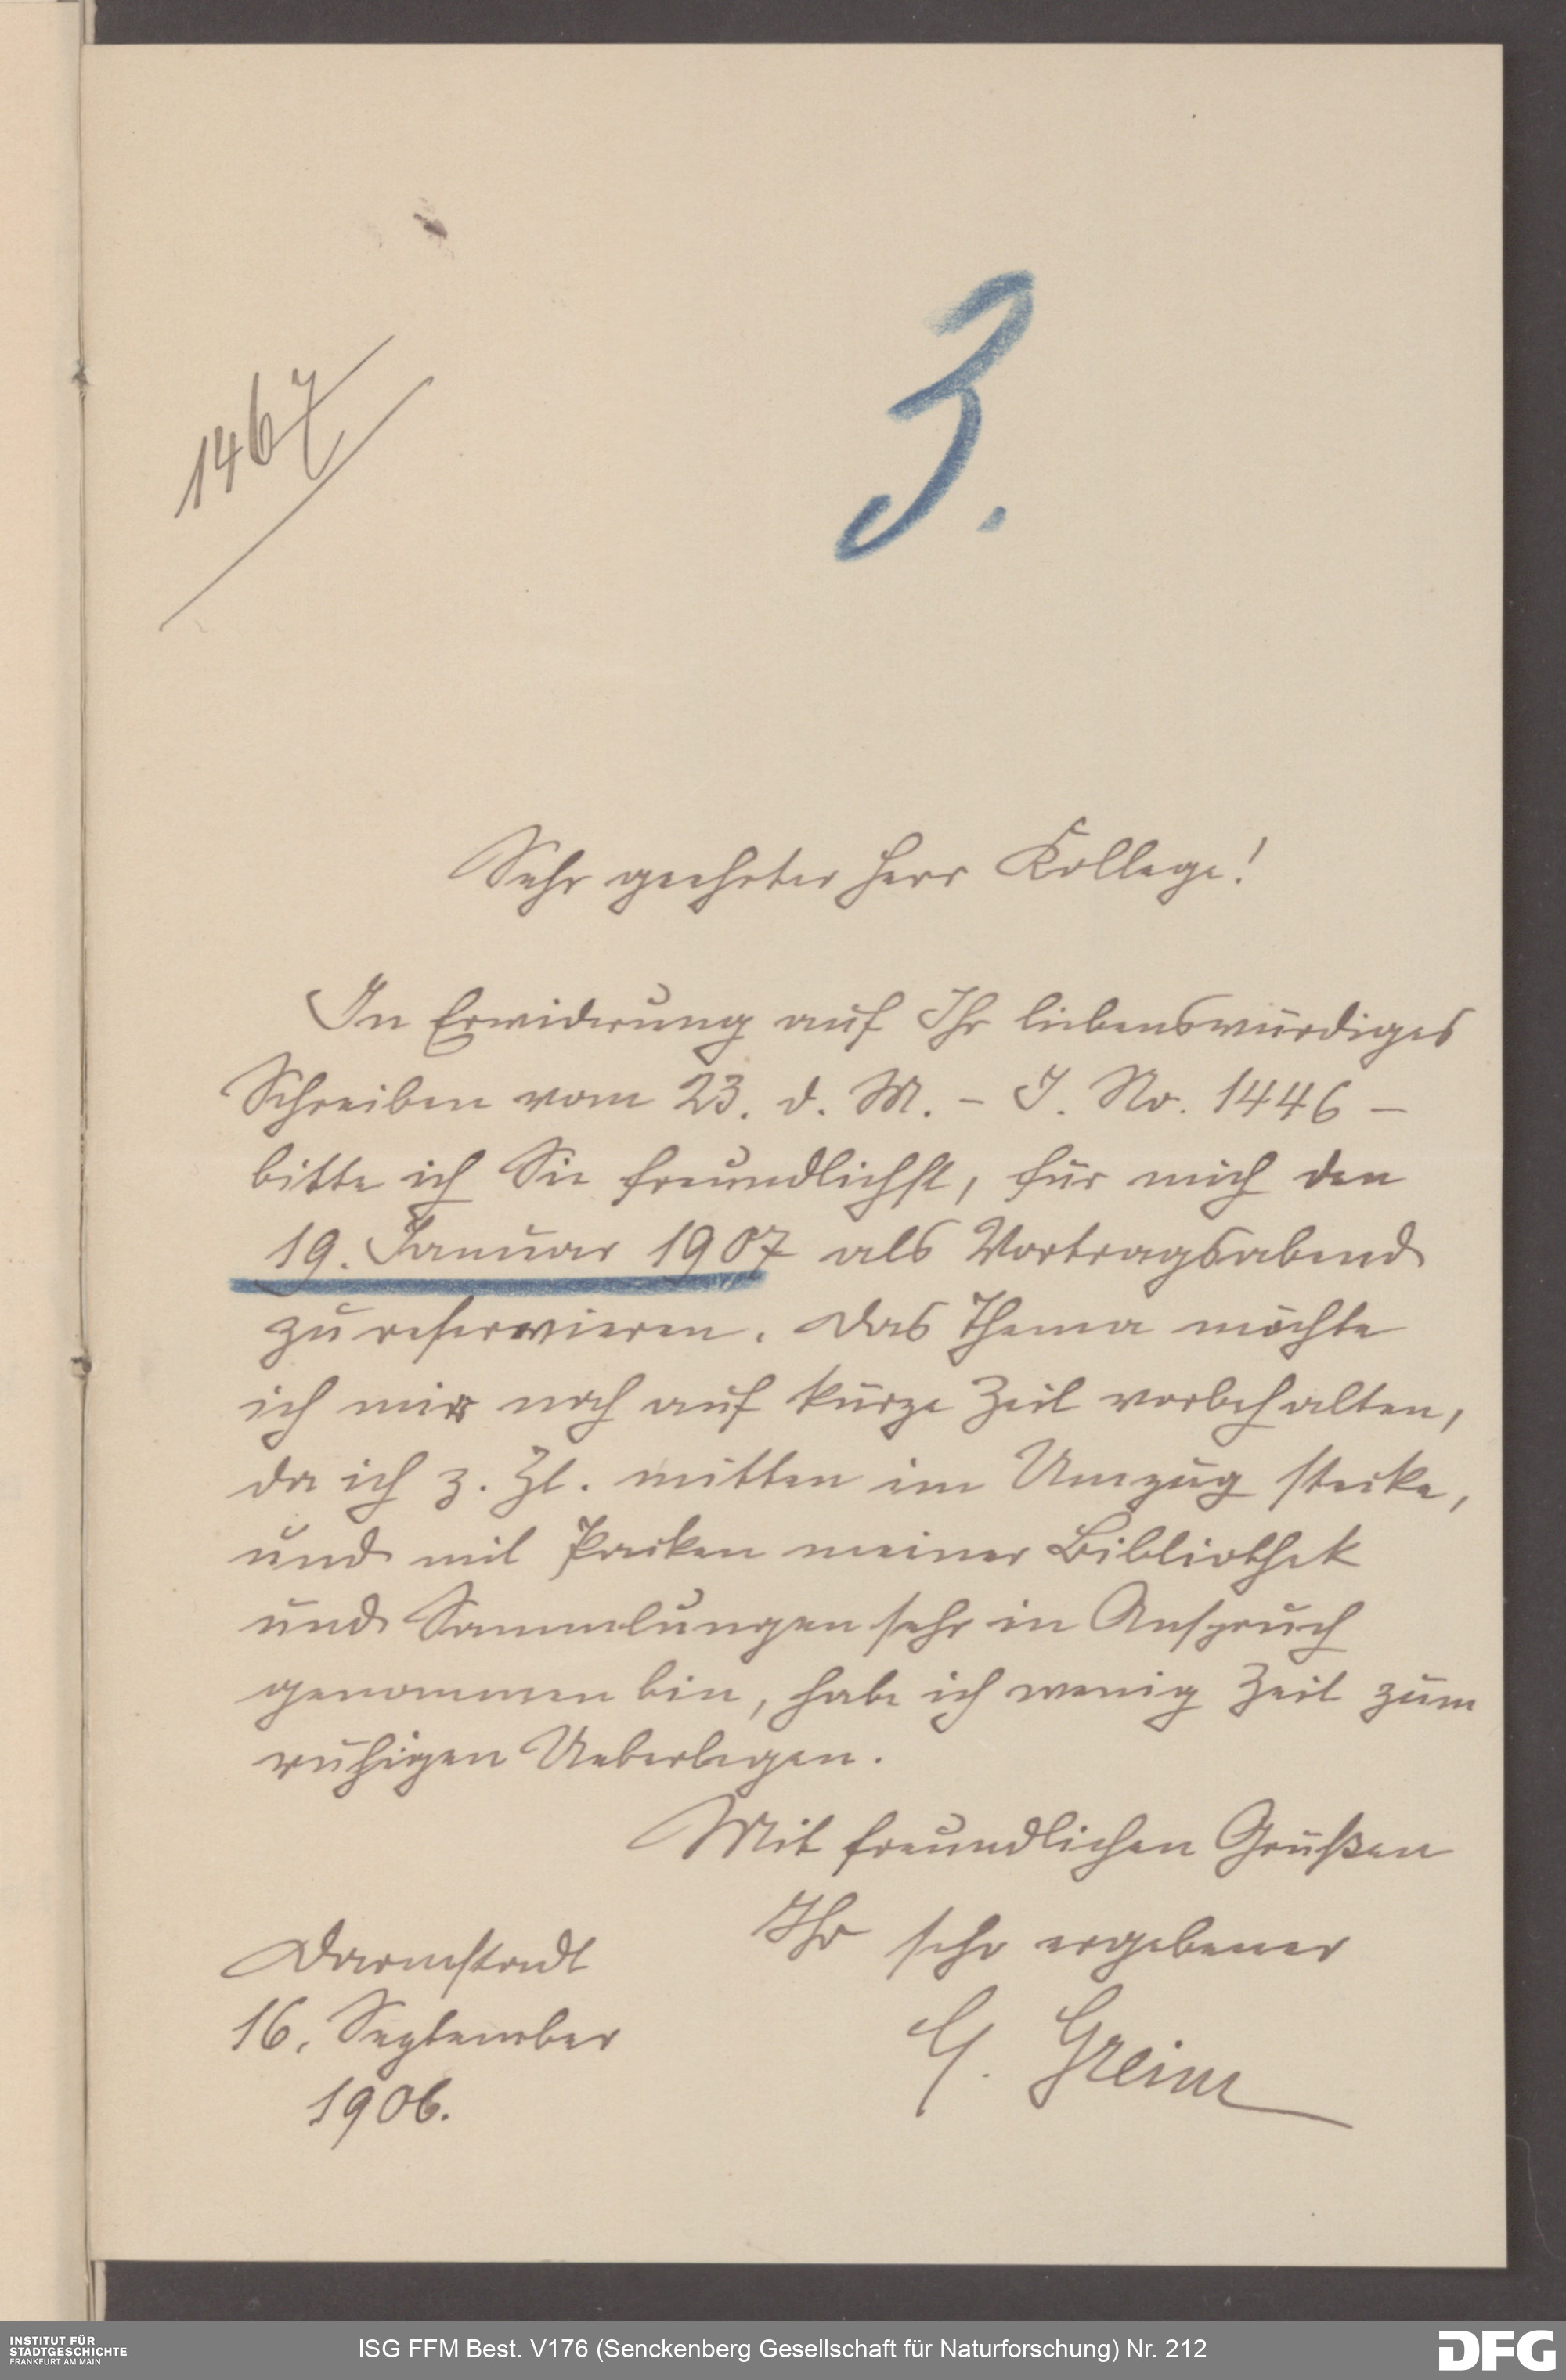 1467
3.
Sehr geehrter Herr Kollege!
In Erwiderung auf Ihr liebenswürdiges
Schreiben vom 23. d. M. – J. No. 1446 –
bitte ich Sie freundlichst, für mich den
19. Januar 1907 als Vortragsabend
zu reservieren. Das Thema möchte
ich mir noch auf kurze Zeit vorbehalten,
da ich z. Zt. mitten im Umzug stecke,
und mit Packen meiner Bibliothek
und Sammlungen sehr in Anspruch
genommen bin, habe ich wenig Zeit zum
ruhigen Ueberlegen.
Mit freundlichen Grüßen
Ihr sehr ergebener
G. Greim
Darmstadt
16. September
1906.
INSTITUT FÜR
STADTGESCHICHTE
FRANKFURT AM MAIN
ISG FFM Best. V176 (Senckenberg Gesellschaft für Naturforschung) Nr. 212
DFG